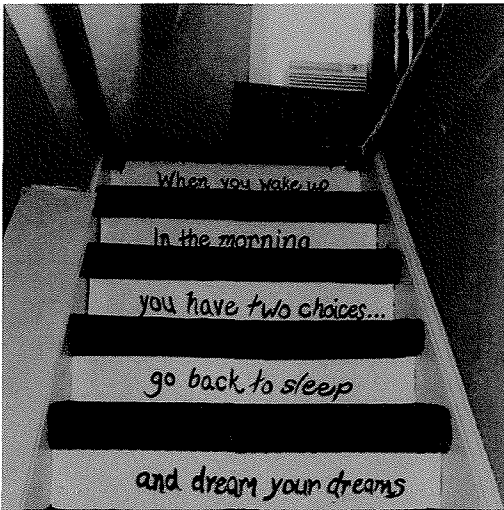 When you wake up
In the morning
you have two choices...
go back to sleep
and dream your dreams